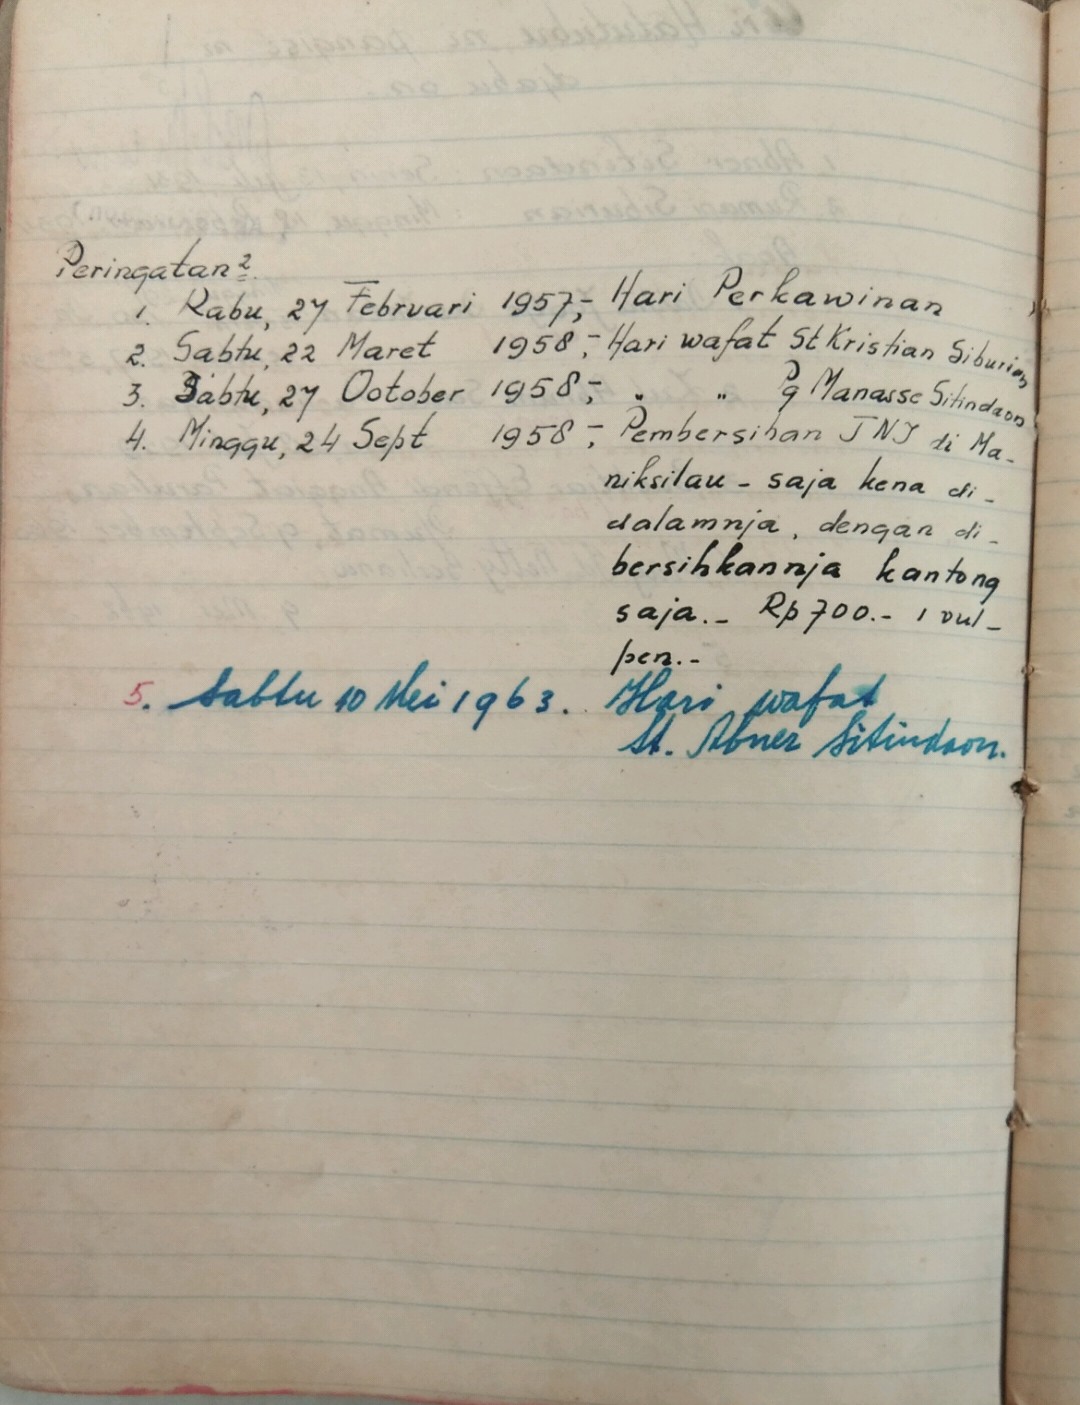 Peringatan2.
1. Rabu, 27 Februari 1957,- Hari Perkawinan
2. Sabtu, 22 Maret 1958,- Hari wafat St Kristian Siburian
3. Sabtu, 27 Ootober 1958,- " " Pg Manasse Sitindaon
4. Minggu, 24 Sept 1958,- Pembersihan TNI di Ma-
niksilau - saja kena di-
dalamnja, dengan di-
bersihkannja kantong
saja.- Rp 700.- 1 vul-
pen.-
5. Sabtu 10 Mei 1963. Hari wafat
St. Abner Sitindaon.